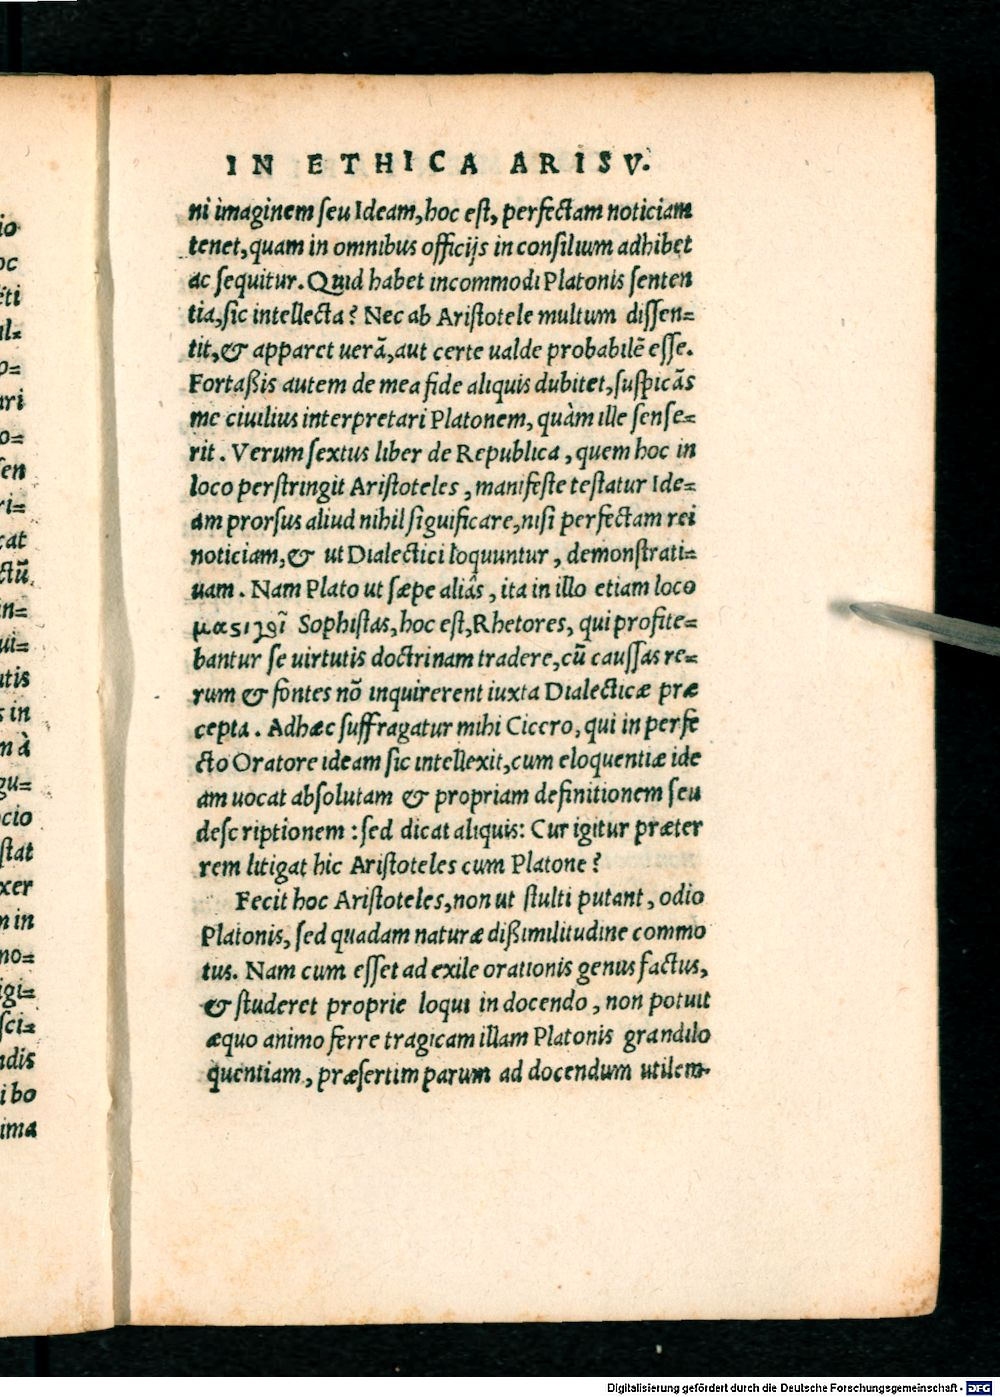 IN ETHICA ARISV.
ni imaginem ſeu Ideam, hoc eſt, perfectam noticiam
tenet, quam in omnibus officijs in conſilium adhibet
ac ſequitur. Quid habet incommodi Platonis ſenten
tia, ſic intellecta? Nec ab Ariſtotele multum diſſen=
tit, & apparet uerã, aut certe ualde probabilẽ eſſe.
Fortaßis autem de mea fide aliquis dubitet, ſuſpicãs
me ciuilius interpretari Platonem, quàm ille ſenſe=
rit. Verum ſextus liber de Republica, quem hoc in
loco perſtringit Ariſtoteles, manifeſte teſtatur Ide=
am prorſus aliud nihil ſiguificare, niſi perfectam rei
noticiam, & ut Dialectici loquuntur, demonſtrati=
uam. Nam Plato ut ſæpe aliâs, ita in illo etiam loco
Sophiſtas, hoc eſt, Rhetores, qui profite=
bantur ſe uirtutis doctrinam tradere, cũ cauſſas re=
rum & fontes nõ inquirerent iuxta Dialecticæ præ
cepta. Adhæc ſuffragatur mihi Cicero, qui in perfe
cto Oratore ideam ſic intellexit, cum eloquentiæ ide
am uocat abſolutam & propriam definitionem ſeu
deſcriptionem: ſed dicat aliquis: Cur igitur præter
rem litigat hic Ariſtoteles cum Platone?
Fecit hoc Ariſtoteles, non ut ſtulti putant, odio
Platonis, ſed quadam naturæ dißimilitudine commo
tus. Nam cum eſſet ad exile orationis genus factus,
& ſtuderet proprie loqui in docendo, non potuit
æquo animo ferre tragicam illam Platonis grandilo
quentiam, præſertim parum ad docendum utilem.
Digitalisierung gefördert durch die Deutsche Forschungsgemeinschaft - DFG